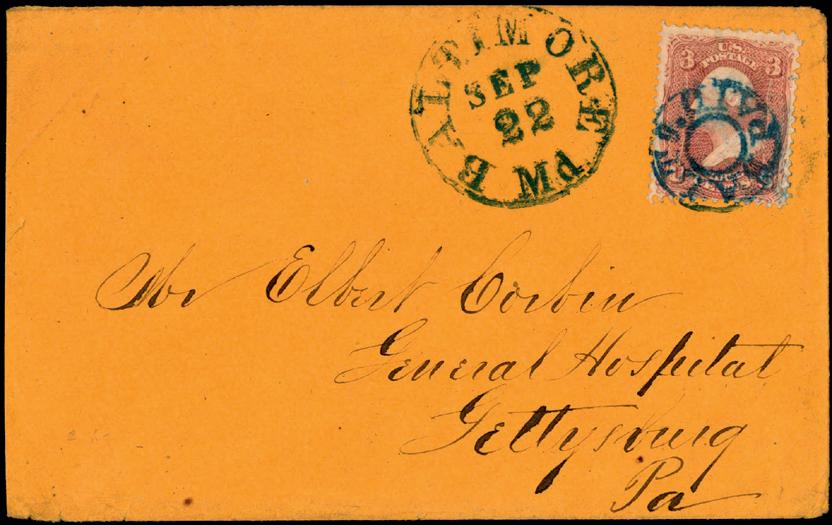 BALTIMORE Md
SEP
22
3 U.S. 3
POSTAGE
PAID
Mr Elbert Corbin
General Hospital
Gettysburg
Pa